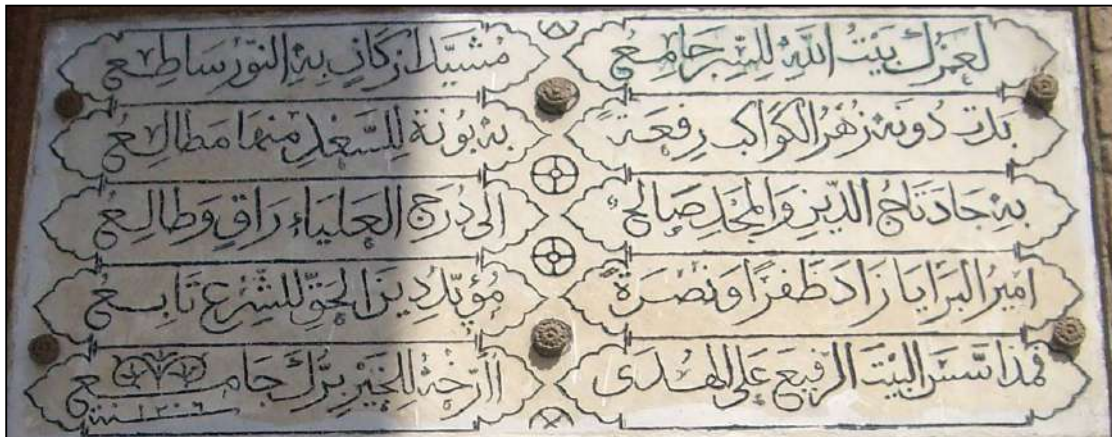 لَعَمْرُكَ بَيْتُ اللهِ لِلسِّرِ جَامِعُ مُشَيَّدُ ارْكَانٍ بِهِ النُّورُ سَاطِعُ
بَدَتْ دُونَهُ زُهْرُ الكَوَاكِبِ رِفْعَةً بِهِ بُونَةٌ لِلسَّعْدِ مِنْهَا مَطَالِعُ
بِهِ جَادَ تَاجُ الدِّينِ وَالمَجْدِ صَالِحُ الى دُرَجِ العَلْيَاءِ رَاقٍ وَطَالِعُ
امِيرُ البَرَايَا زَادَ ظَفْرًا وَنُصْرَةً مُؤَيِّدُ دِينِ الحَقِّ لِلشَّرْعِ تَابِعُ
فمذا سَّسَ البَيْتَ الرَفِيعَ عَلَى الهُدَى اأرِّخهُ لِلْخَيْرِ بِرُّكَ جَامِعُ
سنة ١٢٠٦